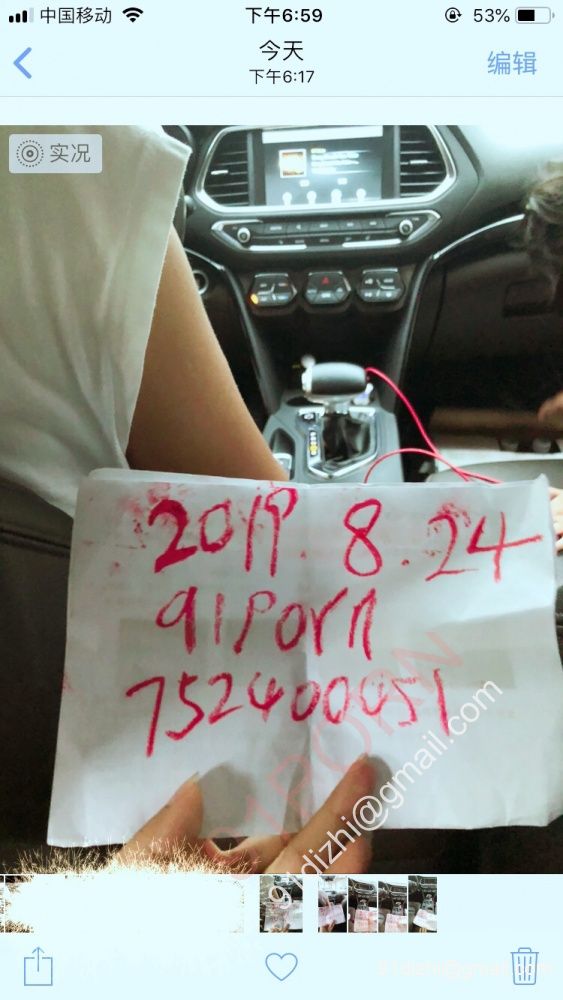 中国移动
下午6:59
53%
今天
下午6:17
编辑
实况
2019.8.24
91Porn
752400451
91PORN
91dizhi@gmail.com
91dizhi@gmail.com